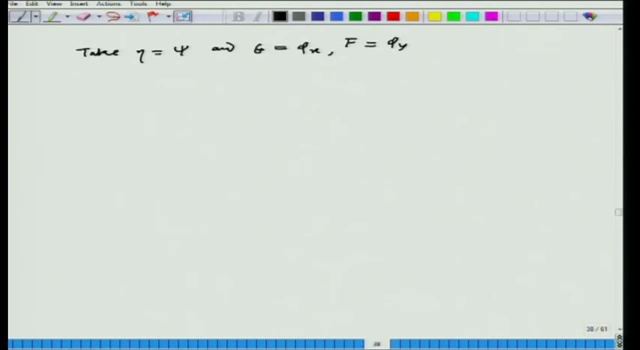 Edit View Insert Actions Tools Help
B I
Take η = ψ and G = φx, F = φy
38 / 61
38